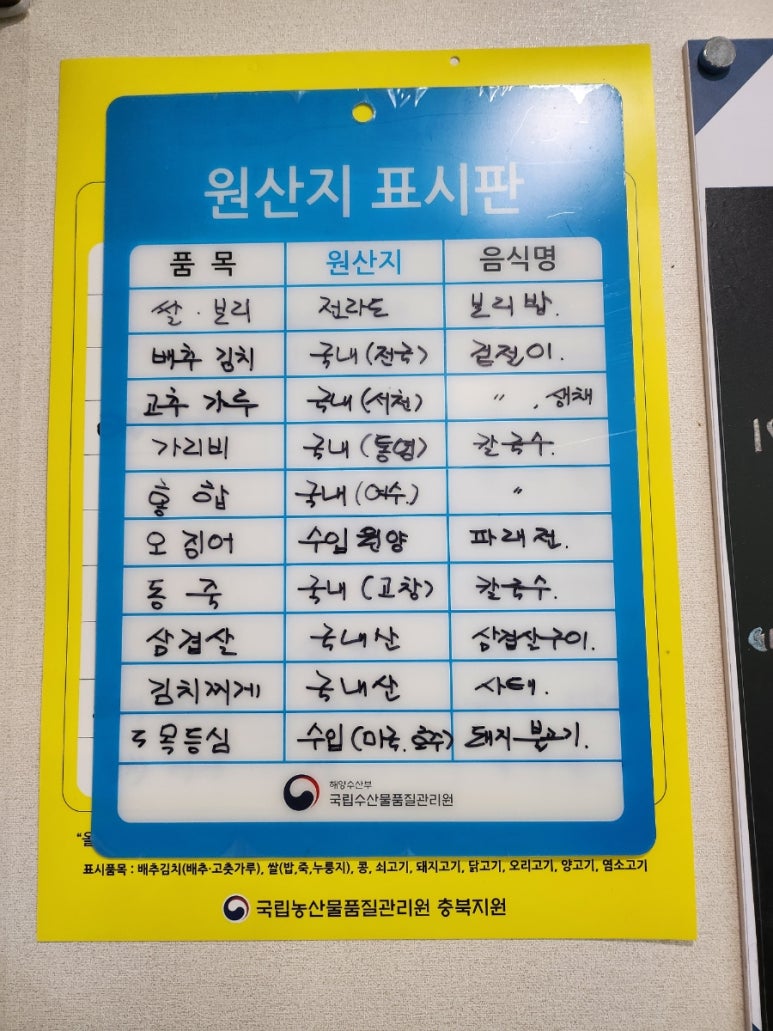 원산지 표시판
품 목 원산지 음식명
쌀 · 보리 전라도 보리밥.
배추 김치 국내(전국) 겉절이.
고추 가루 국내(서천) 〃 , 생채
가리비 국내(통영) 칼국수.
홍 합 국내(여수.) 〃
오 징어 수입 원양 파래전.
동 죽 국내 (고창) 칼국수.
삼겹살 국내산 삼겹살구이.
김치찌게 국내산 사태.
목등심 수입 (미국. 호주) 돼지불고기.
해양수산부
국립수산물품질관리원
표시품목 : 배추김치(배추·고춧가루), 쌀(밥,죽,누룽지), 콩, 쇠고기, 돼지고기, 닭고기, 오리고기, 양고기, 염소고기
국립농산물품질관리원 충북지원